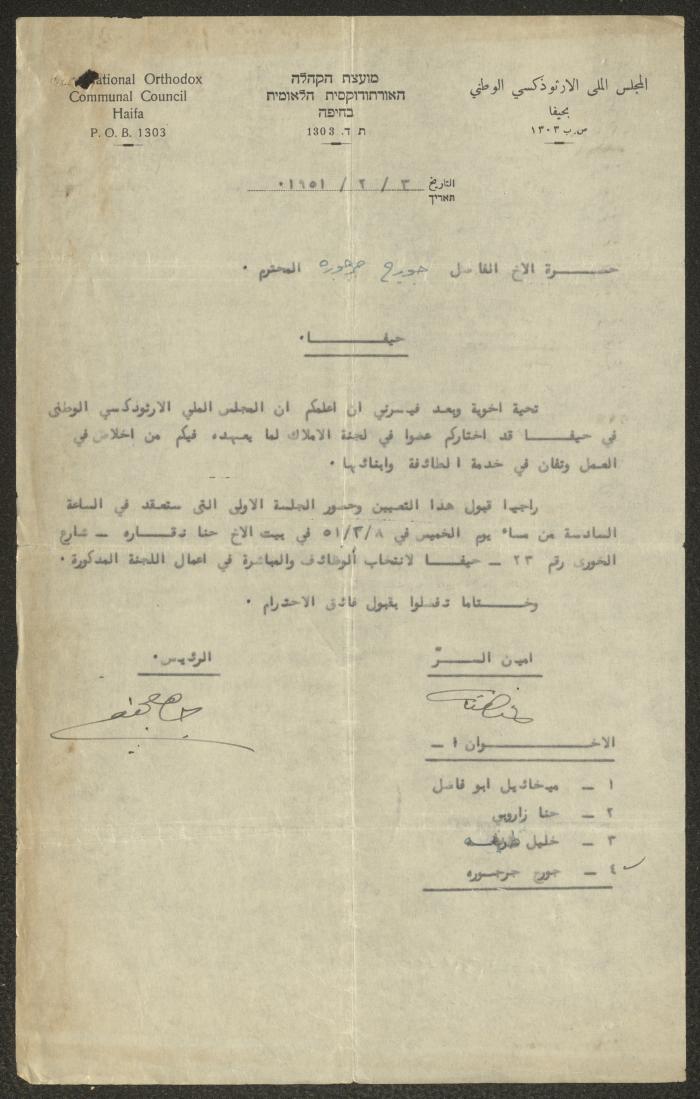 National Orthodox
Communal Council
Haifa
P. O. B. 1303
מועצת הקהלה
האורתודוקסית הלאומית
בחיפה
ת ד. 1303
المجلس الملي الارثوذكسي الوطني
بحيفا
ص.ب ١٣٠٣
التاريخ ٣ / ٢ / ١٩٥١
תאריך
حضرة الاخ الفاضل جورج جرجوره المحترم ٠
حيفا ٠
تحية اخوية وبعد فيسرني ان اعلمكم ان المجلس الملي الارثوذكسي الوطني
في حيفا قد اختاركم عضوا في لجنة الاملاك لما يعهده فيكم من اخلاص في
العمل وتفان في خدمة الطائفة وابنائها ٠
راجيا قبول هذا التعيين وحضور الجلسة الاولى التي ستعقد في الساعة
السادسة من مساء يوم الخميس في ٥١/٣/٨ في بيت الاخ حنا نقاره – شارع
الخوري رقم ٢٣ – حيفا لانتخاب الوظائف والمباشرة في اعمال اللجنة المذكورة ٠
وختاما تفضلوا بقبول فائق الاحترام ٠
امين السرّ
الرئيس ٠
الاخوان ١ –
١ – ميخائيل ابو فاضل
٢ – حنا زاروبي
٣ – خليل
٤ – جورج جرجوره